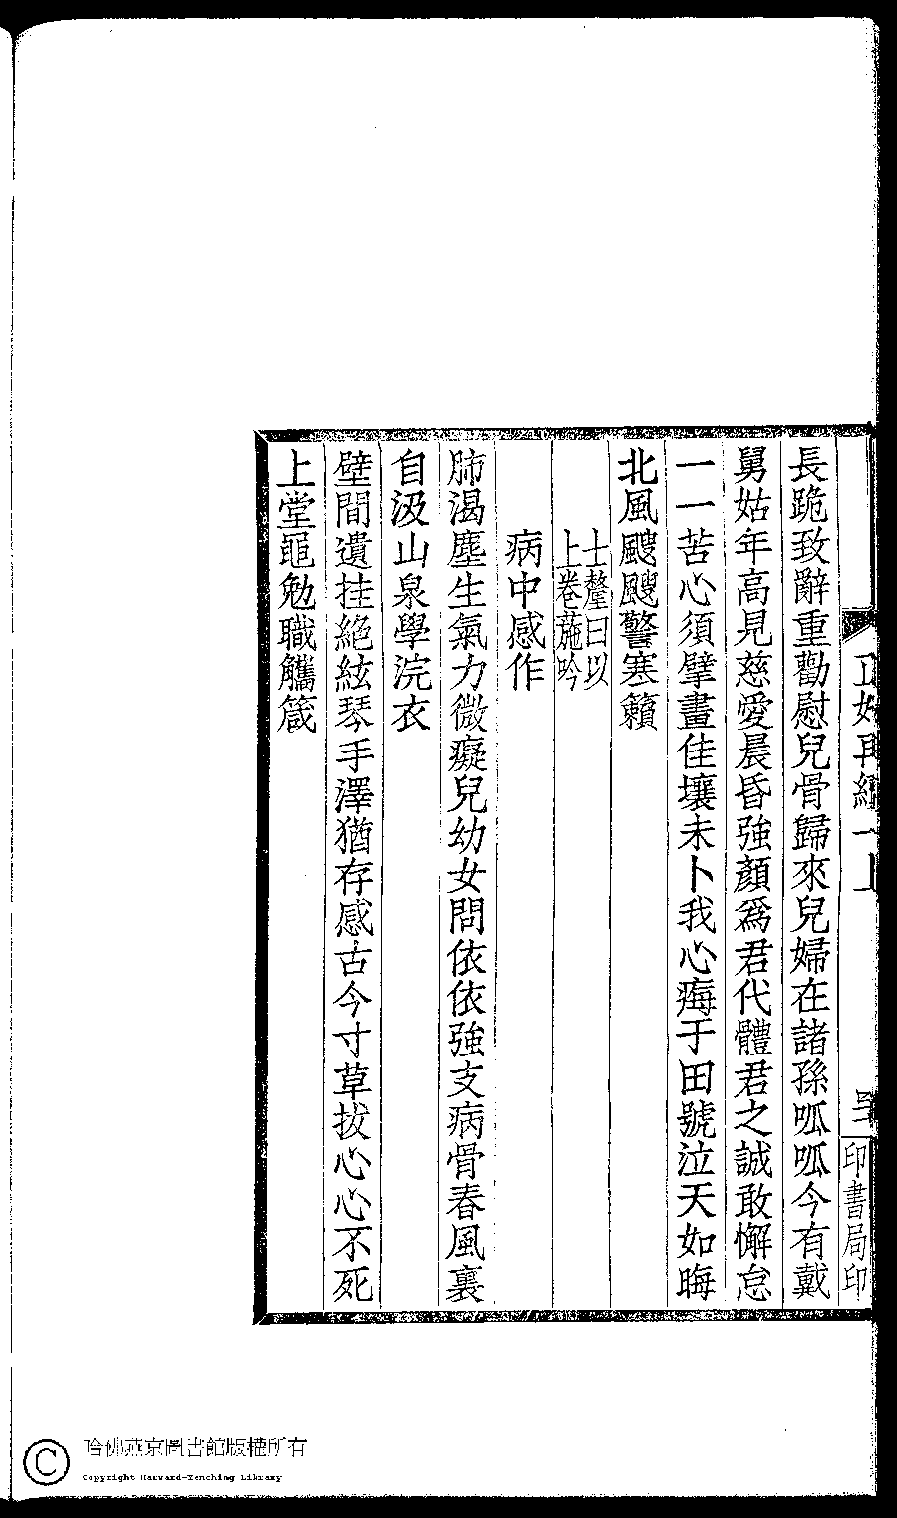 長跪致辭重勸慰兒骨歸來兒婦在諸孫呱呱今有戴
舅姑年高見慈愛晨昏強顏爲君代體君之誠敢懈怠
一一苦心須擘畫佳壤未卜我心痗于田號泣天如晦
北風颼颼警寒籟
士釐曰以
上卷葹吟
病中感作
肺渴塵生氣力微癡兒幼女問依依強支病骨春風裏
自汲山泉學浣衣
壁間遺挂絕絃琴手澤猶存感古今寸草拔心心不死
上堂黽勉職觿箴
再續一上
印書局印
哈佛燕京圖書館版權所有
Copyright Harvard-Yenching Library